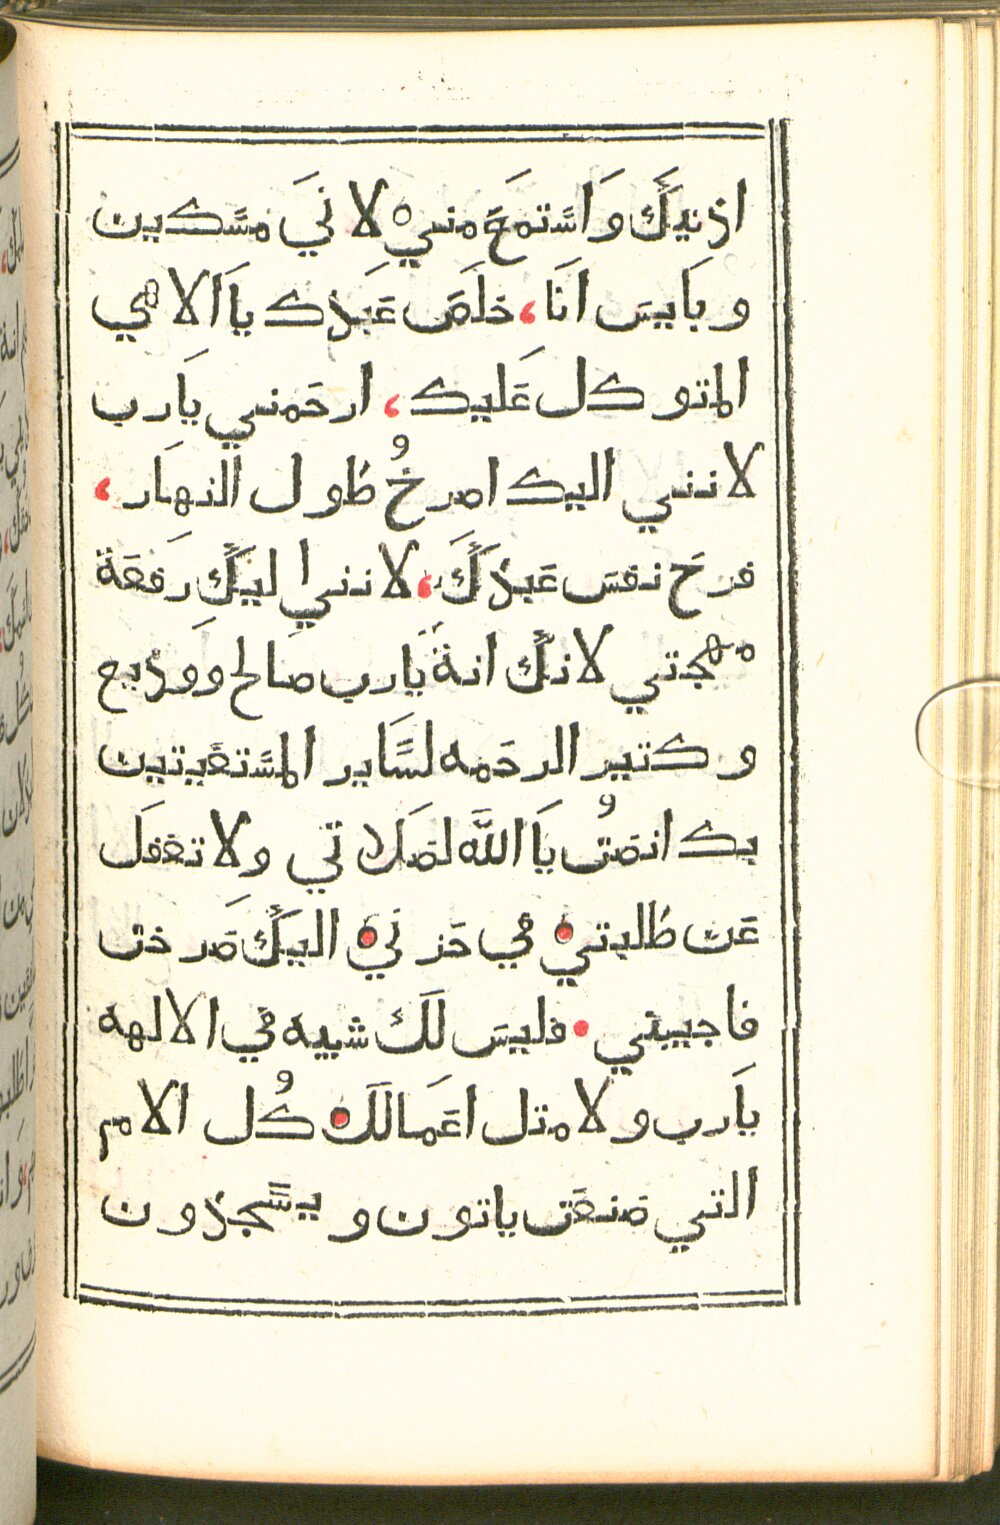 اذنيك وَاسْتمعَ مني لانيَ مسَكين
وبَايس انَا، خلصَ عَبدَك يَا الاهي
المتوكل عَليك، ارحَمني يَارب
لانني اليك اصرخُ طول النهَار،
فرحَ نفسَ عَبدكَ، لانني اليكَ رَفعَة
مهجتي لانكَ انةَ يَارب صَالح وَوديع
وكتير الرحَمه لسَاير المسَتغيتين
بك انصَتُ يَا اللَّه لصَلاتي ولا تغفلَ
عَن طلبتي في حَزني اليكَ صَرخت
فاجيبني • فليسَ لَك شبيه في الالهه
يَارب ولا متل اعمَالَك كُل الامم
التي صَنعَت ياتون ويسَجدون